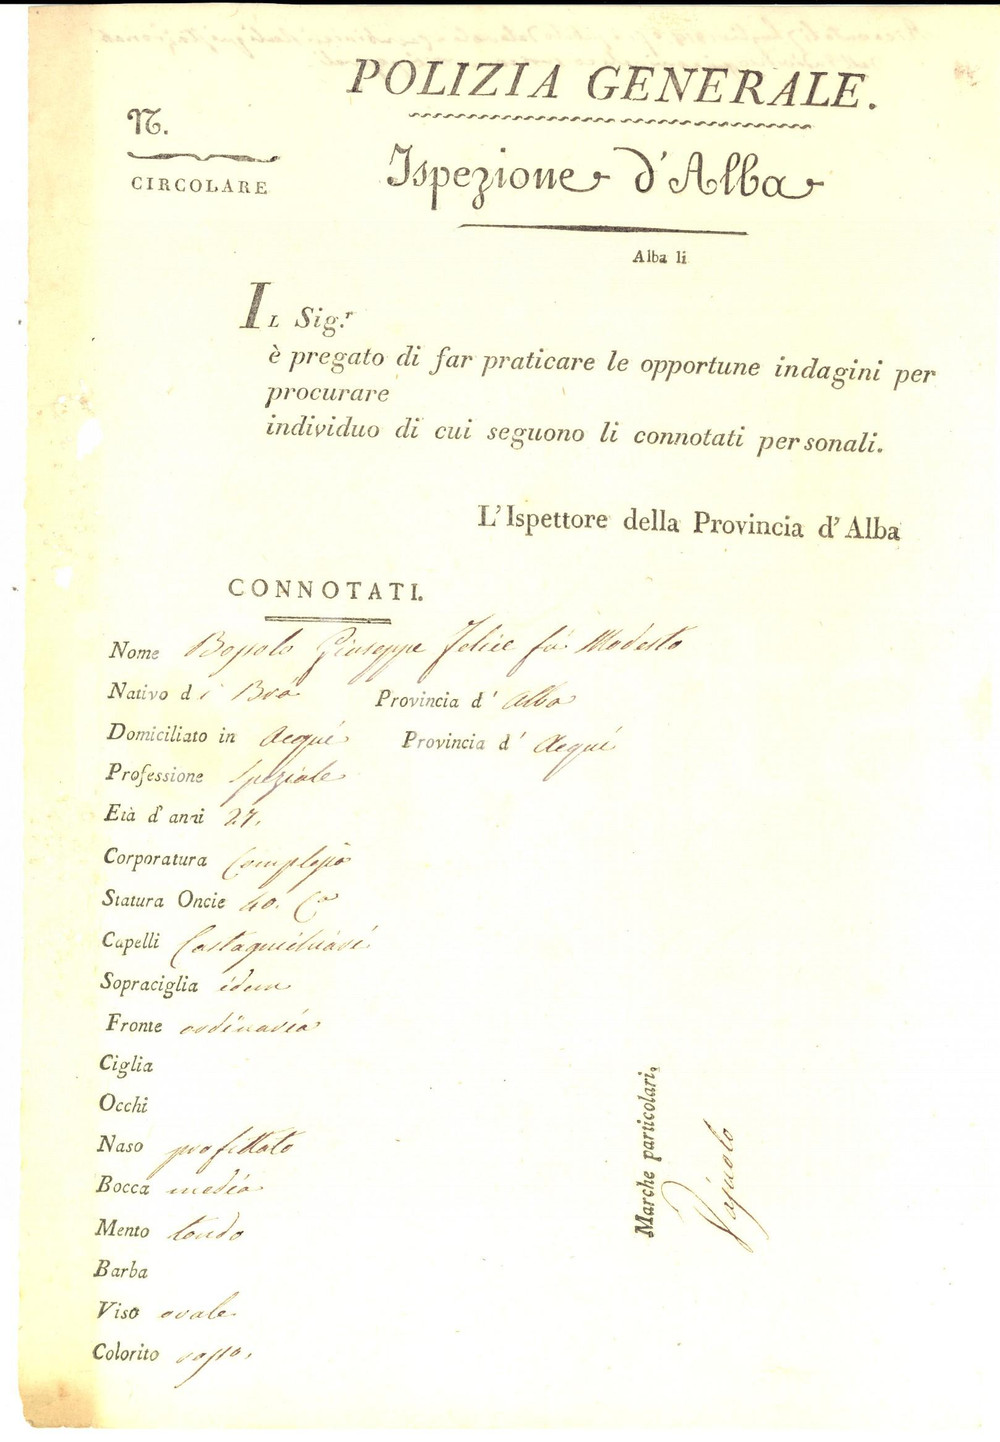 POLIZIA GENERALE.
N.
CIRCOLARE
Ispezione d'Alba
Alba li
IL Sig.r
è pregato di far praticare le opportune indagini per
procurare
individuo di cui seguono li connotati personali.
L'Ispettore della Provincia d'Alba
CONNOTATI.
Nome Bossolo Giuseppe Felice fù Modesto
Nativo di Brà Provincia d' Alba
Domiciliato in Acqui Provincia d' Acqui
Professione Speziale
Età d'anni 27.
Corporatura Complessa
Statura Oncie 40. Ca
Capelli Castagnichiari
Sopraciglia idem
Fronte ordinaria
Ciglia
Occhi
Naso profittato
Bocca media
Mento tondo
Barba
Viso ovale
Colorito rosso.
Marche particolari,